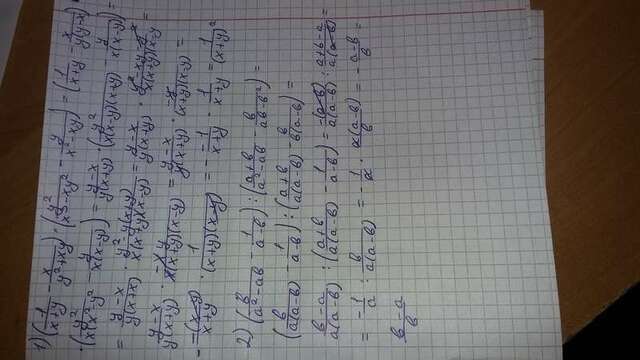 1) (1/(x+y) - x/(y²+xy)) · (y²/(x³-xy²) - y/(x²-xy)) = (1/(x+y) - x/(y(y-x))) ·
· (y²/(x(x²-y²)) - y/(x(x-y))) = (y-x)/(y(x+y)) · (y²/(x(x-y)(x+y)) - y/(x(x-y))) =
= (y-x)/(y(x+x)) · (y²-y(x+y))/(x(x+y)(x-y)) = (y-x)/(y(x+y)) · (y²-xy-y²)/(x(x+y)(x-y)) =
(y-x)/(y(x+y)) · (-xy)/(x(x+y)(x-y)) = (y-x)/(y(x+y)) · (-y)/((x+y)(x-y)) =
- (-(x-y))/(x+y) · 1/((x+y)(x-y)) = - (-1)/(x+y) · 1/(x+y) = 1/(x+y)²
2) (в/(a²-aв) - 1/(a-в)) : ((a+в)/(a²-aв) - в/(aв-в²)) =
(в/(a(a-в)) - 1/(a-в)) : ((a+в)/(a(a-в)) - в/(в(a-в))) =
(в-a)/(a(a-в)) : ((a+в)/(a(a-в)) - 1/(a-в)) = (-(a-в))/(a(a-в)) : (a+в-a)/(a(a-в)) =
= (-1)/a : в/(a(a-в)) = - 1/a · (a(a-в))/в = - (a-в)/в =
(в-a)/в